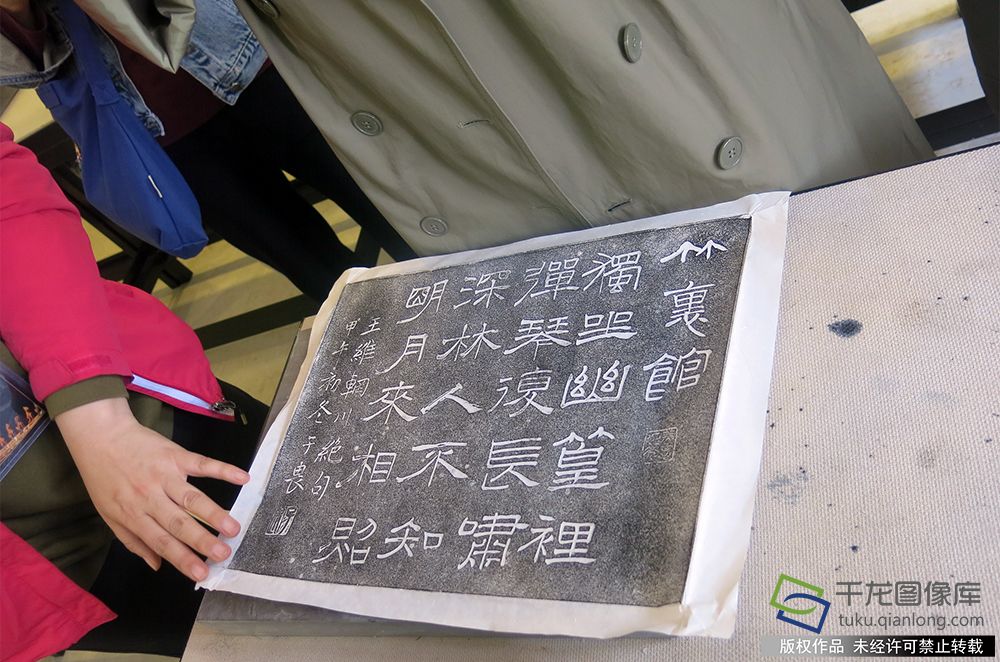 竹裏館
獨坐幽篁裡
彈琴復長嘯
深林人不知
明月來相照
王維輞川絕句
甲午初冬
千龙图像库
tuku.qianlong.com
版权作品 未经许可禁止转载